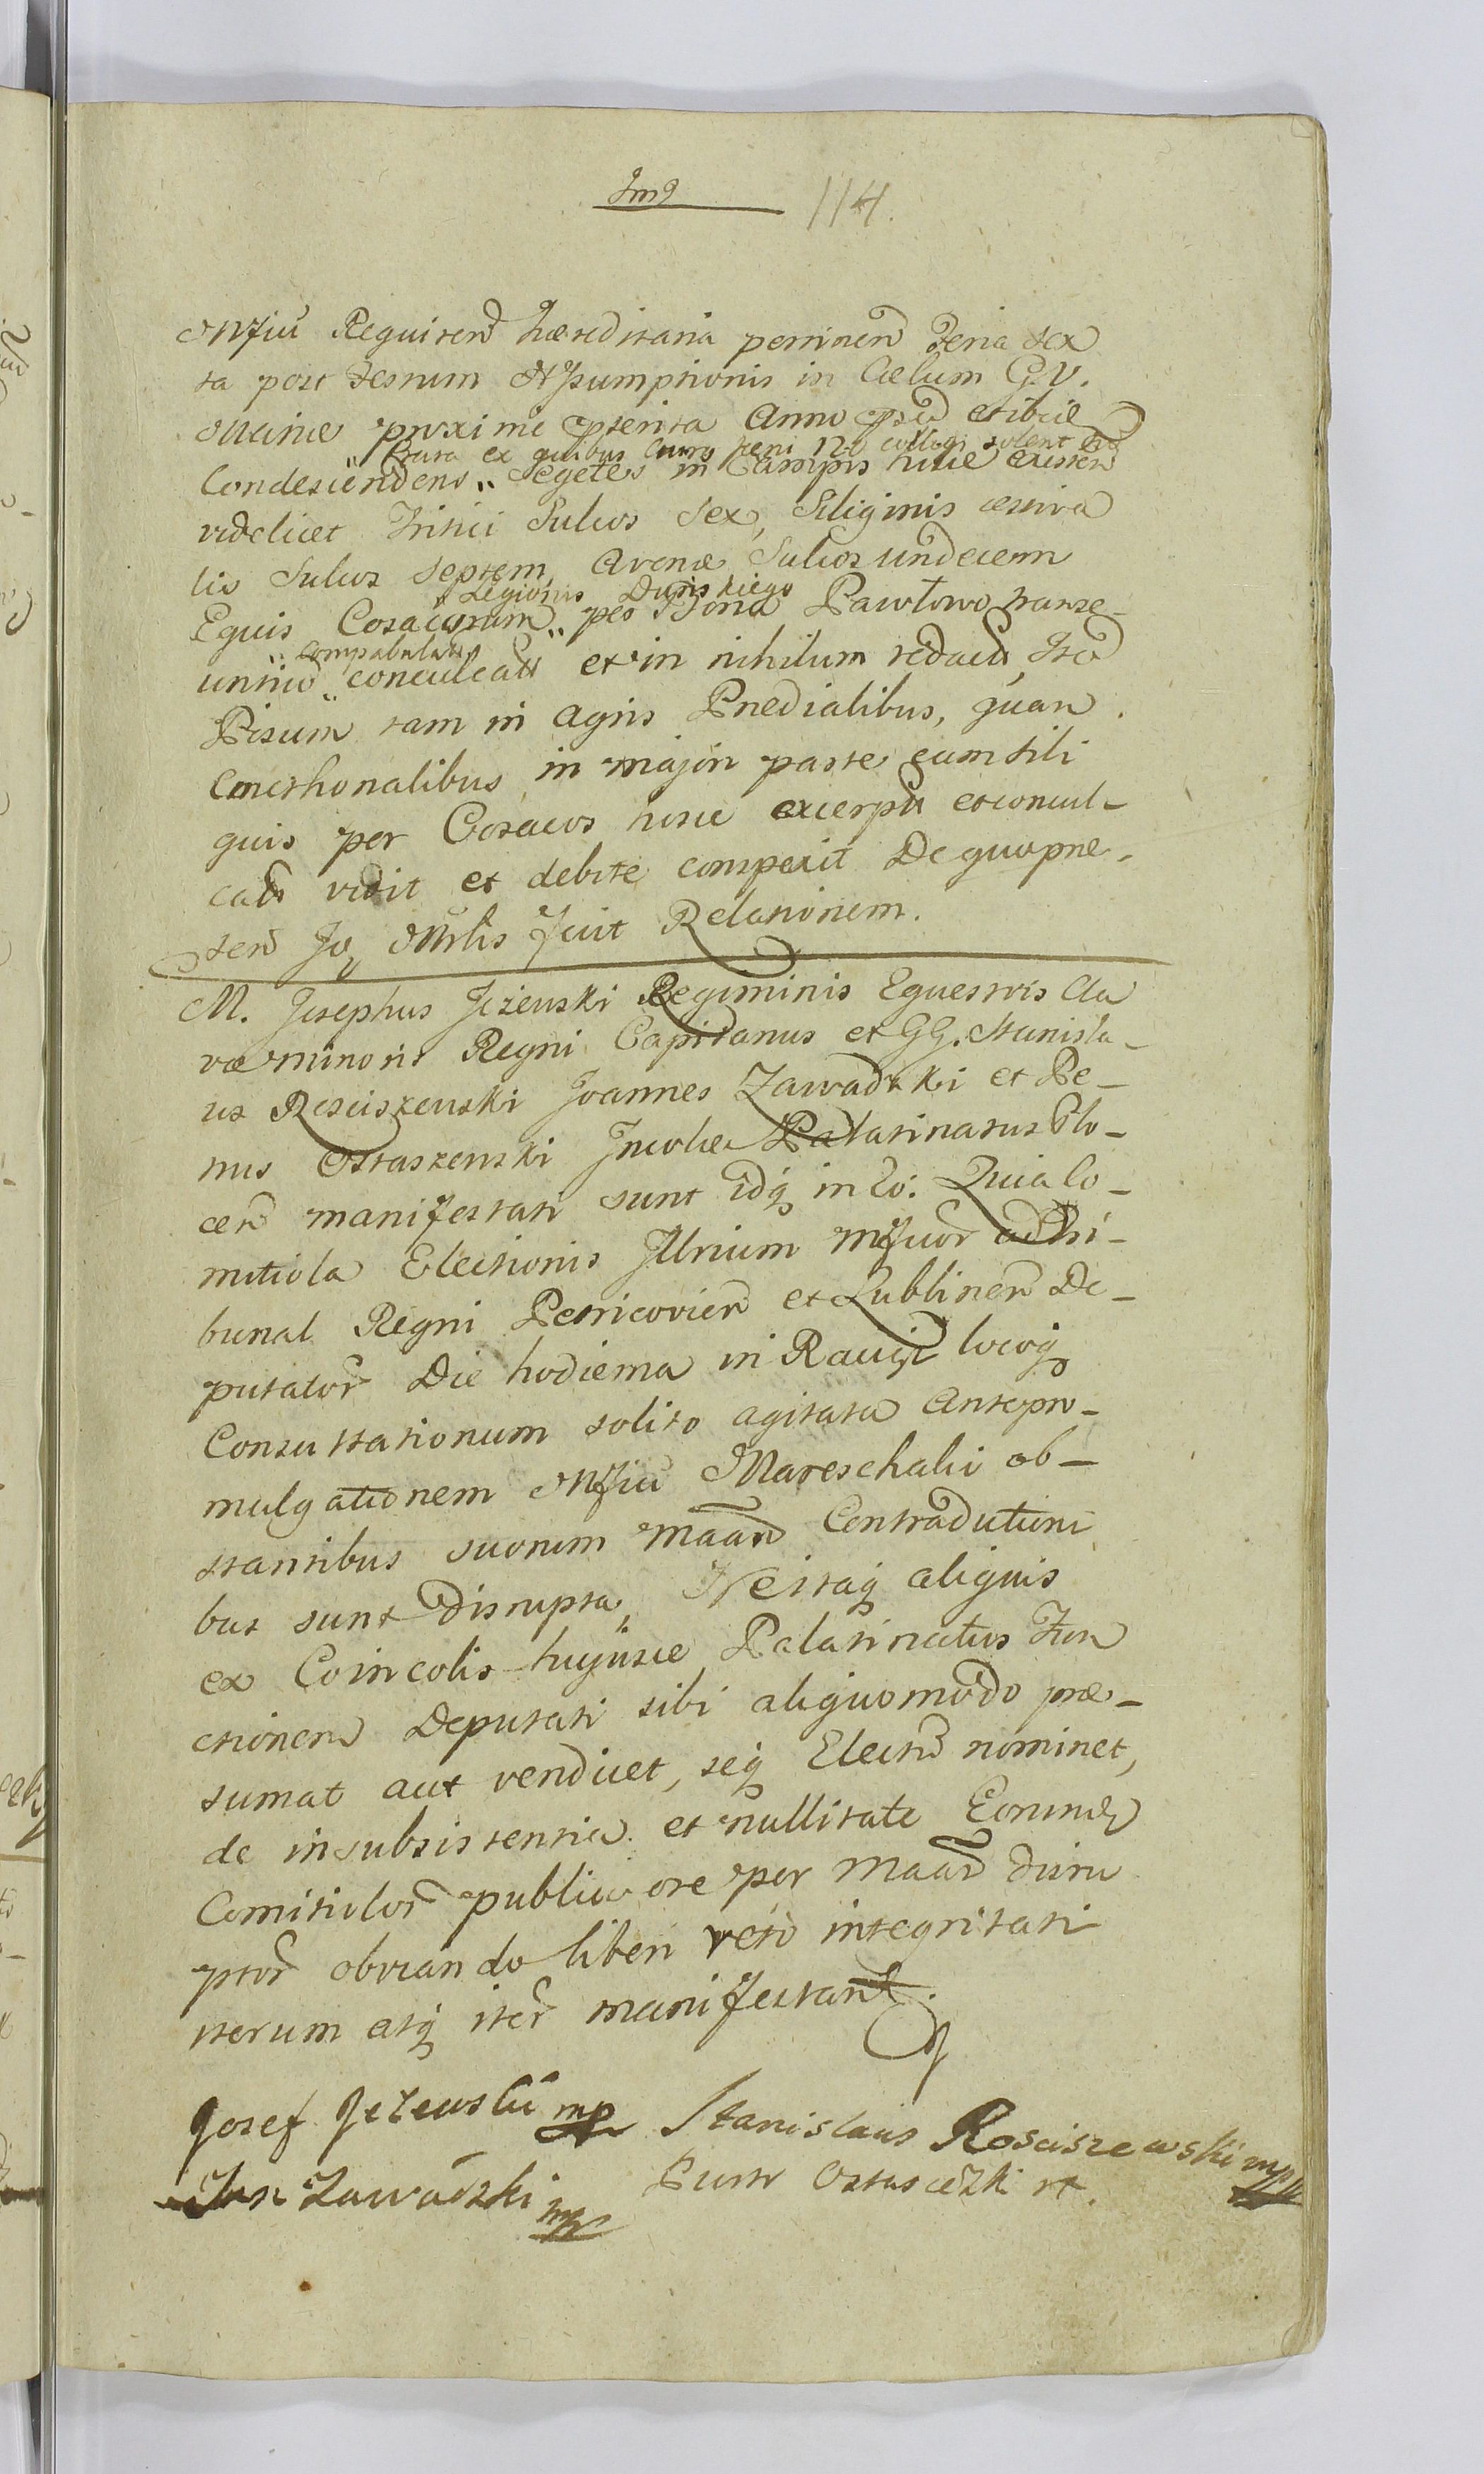 114.
Mfiu Requirend haereditaria pertinen Feria sex
ta post Festum Assumptionis in Caelum G. V.
Mariae proxime pterita Anno psti etibcie
Prata ex quibus Curry feni 120 colligi solent
Condescendens „ Segetes in Campis huic existen
videlicet Tritici Sulcos Sex, Siliginis aestiva
lis Sulcos Septem, Avenae Sulcos undecem
Legionis Duniskiego
Equis Cosacorum „ per Bona Pawłowo transe-
„ compabulati
untiu „ conculcati et in nihilum redacti, Item
Pisum tam in agris Praedialibus, quam
Cmethonalibus in majori parte cum sili
quis per Cosacos hosce excerpti et concul-
cati vidit et debite conspexit De quo prae-
sen Jo, Mrlis fecit Relationem.
M. Josephus Jeżewski Regiminis Equestris Cla
vae minoris Regni Capitanus et GG. Stanisla-
us Rosciszewski Joannes Zawadzki et Pe-
trus Ostaszewski Incolae Palatinatus Plo-
cen manifestati sunt idq in Eo: Quia Co-
mitiola Electionis Illrium Mfcor ad Tri-
bunal Regni Petricovien et Lublinen De-
putator Die hodierna in Raciąż locoq
Consultationum solito agitata ante pro-
mulgationem Mfici Mareschalci ob-
stantibus suorum Maan Contradictioni
bus sunt disrupta, Ne itaq aliquis
ex Coincolis hujusce Palatinatus Fun
ctionem Deputati sibi aliquomodo prae-
sumat aut vendicet, seq Electum nominet,
de insubsistentia et nullitate Eorund
Comitiolor publico ore per Maan disru
ptor obviando liberi veto integritati
iterum atq iter manifestant.
Josef Jeżewski mp Stanislaus Rosciszewski mp
Jan Zawadzki mp Piotr Ostaszewski